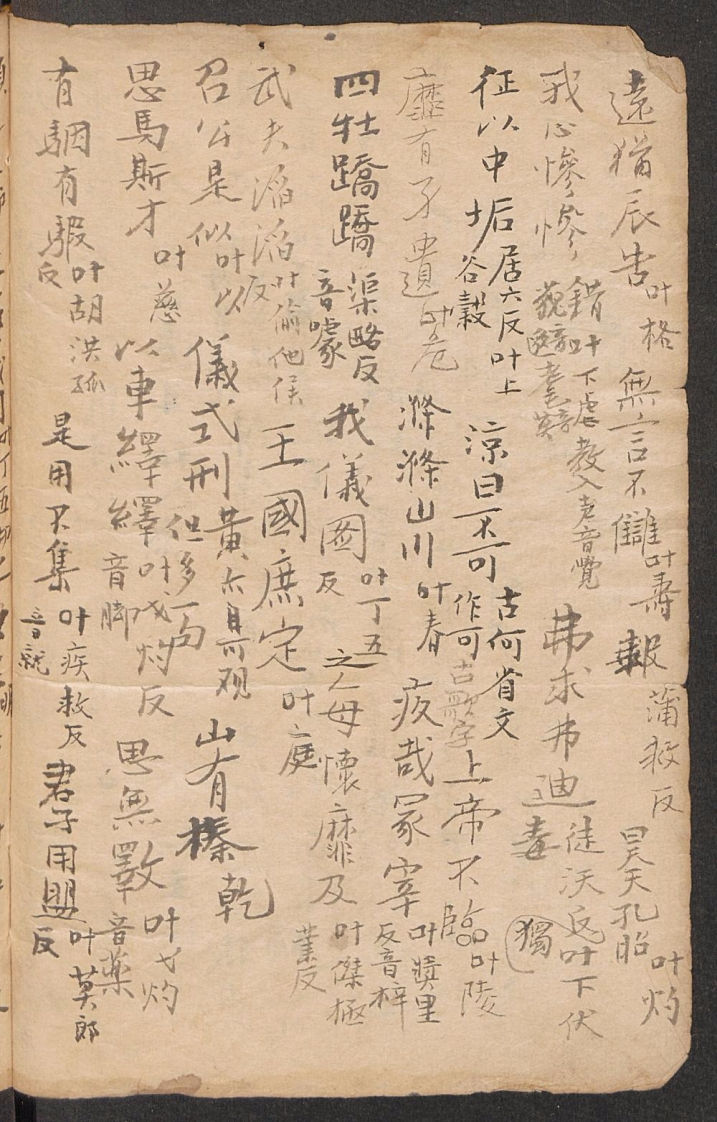 遠猶辰告叶格 無言不讎叶壽 報蒲救反 昊天孔昭叶灼
我心慘慘錯叶下虐 藐音邈 耄音莫 教入声音覺 弗求弗迪徒沃反叶下伏 毒 獨
征以中垢居六反叶上谷穀 涼曰不可古何省文作可古歌字 上帝不臨叶陵
靡有孑遺叶危 滌滌山川叶春 疚哉冢宰叶獎里反音梓
四牡蹻蹻渠略反音噱 我儀圖叶丁五反 之人毋懷靡及叶傑極業反
武夫滔滔叶偷他侯反 王國庶定叶庭
召公是似叶以 儀式刑 黄亦具可观 山有榛 乾
思馬斯才叶慈 以車繹繹叶弋灼反音脚 思無斁叶弋灼音藥
有駰有騢叶胡洪孤反 是用不集叶疾救反音就 君子用盟叶莫郎反